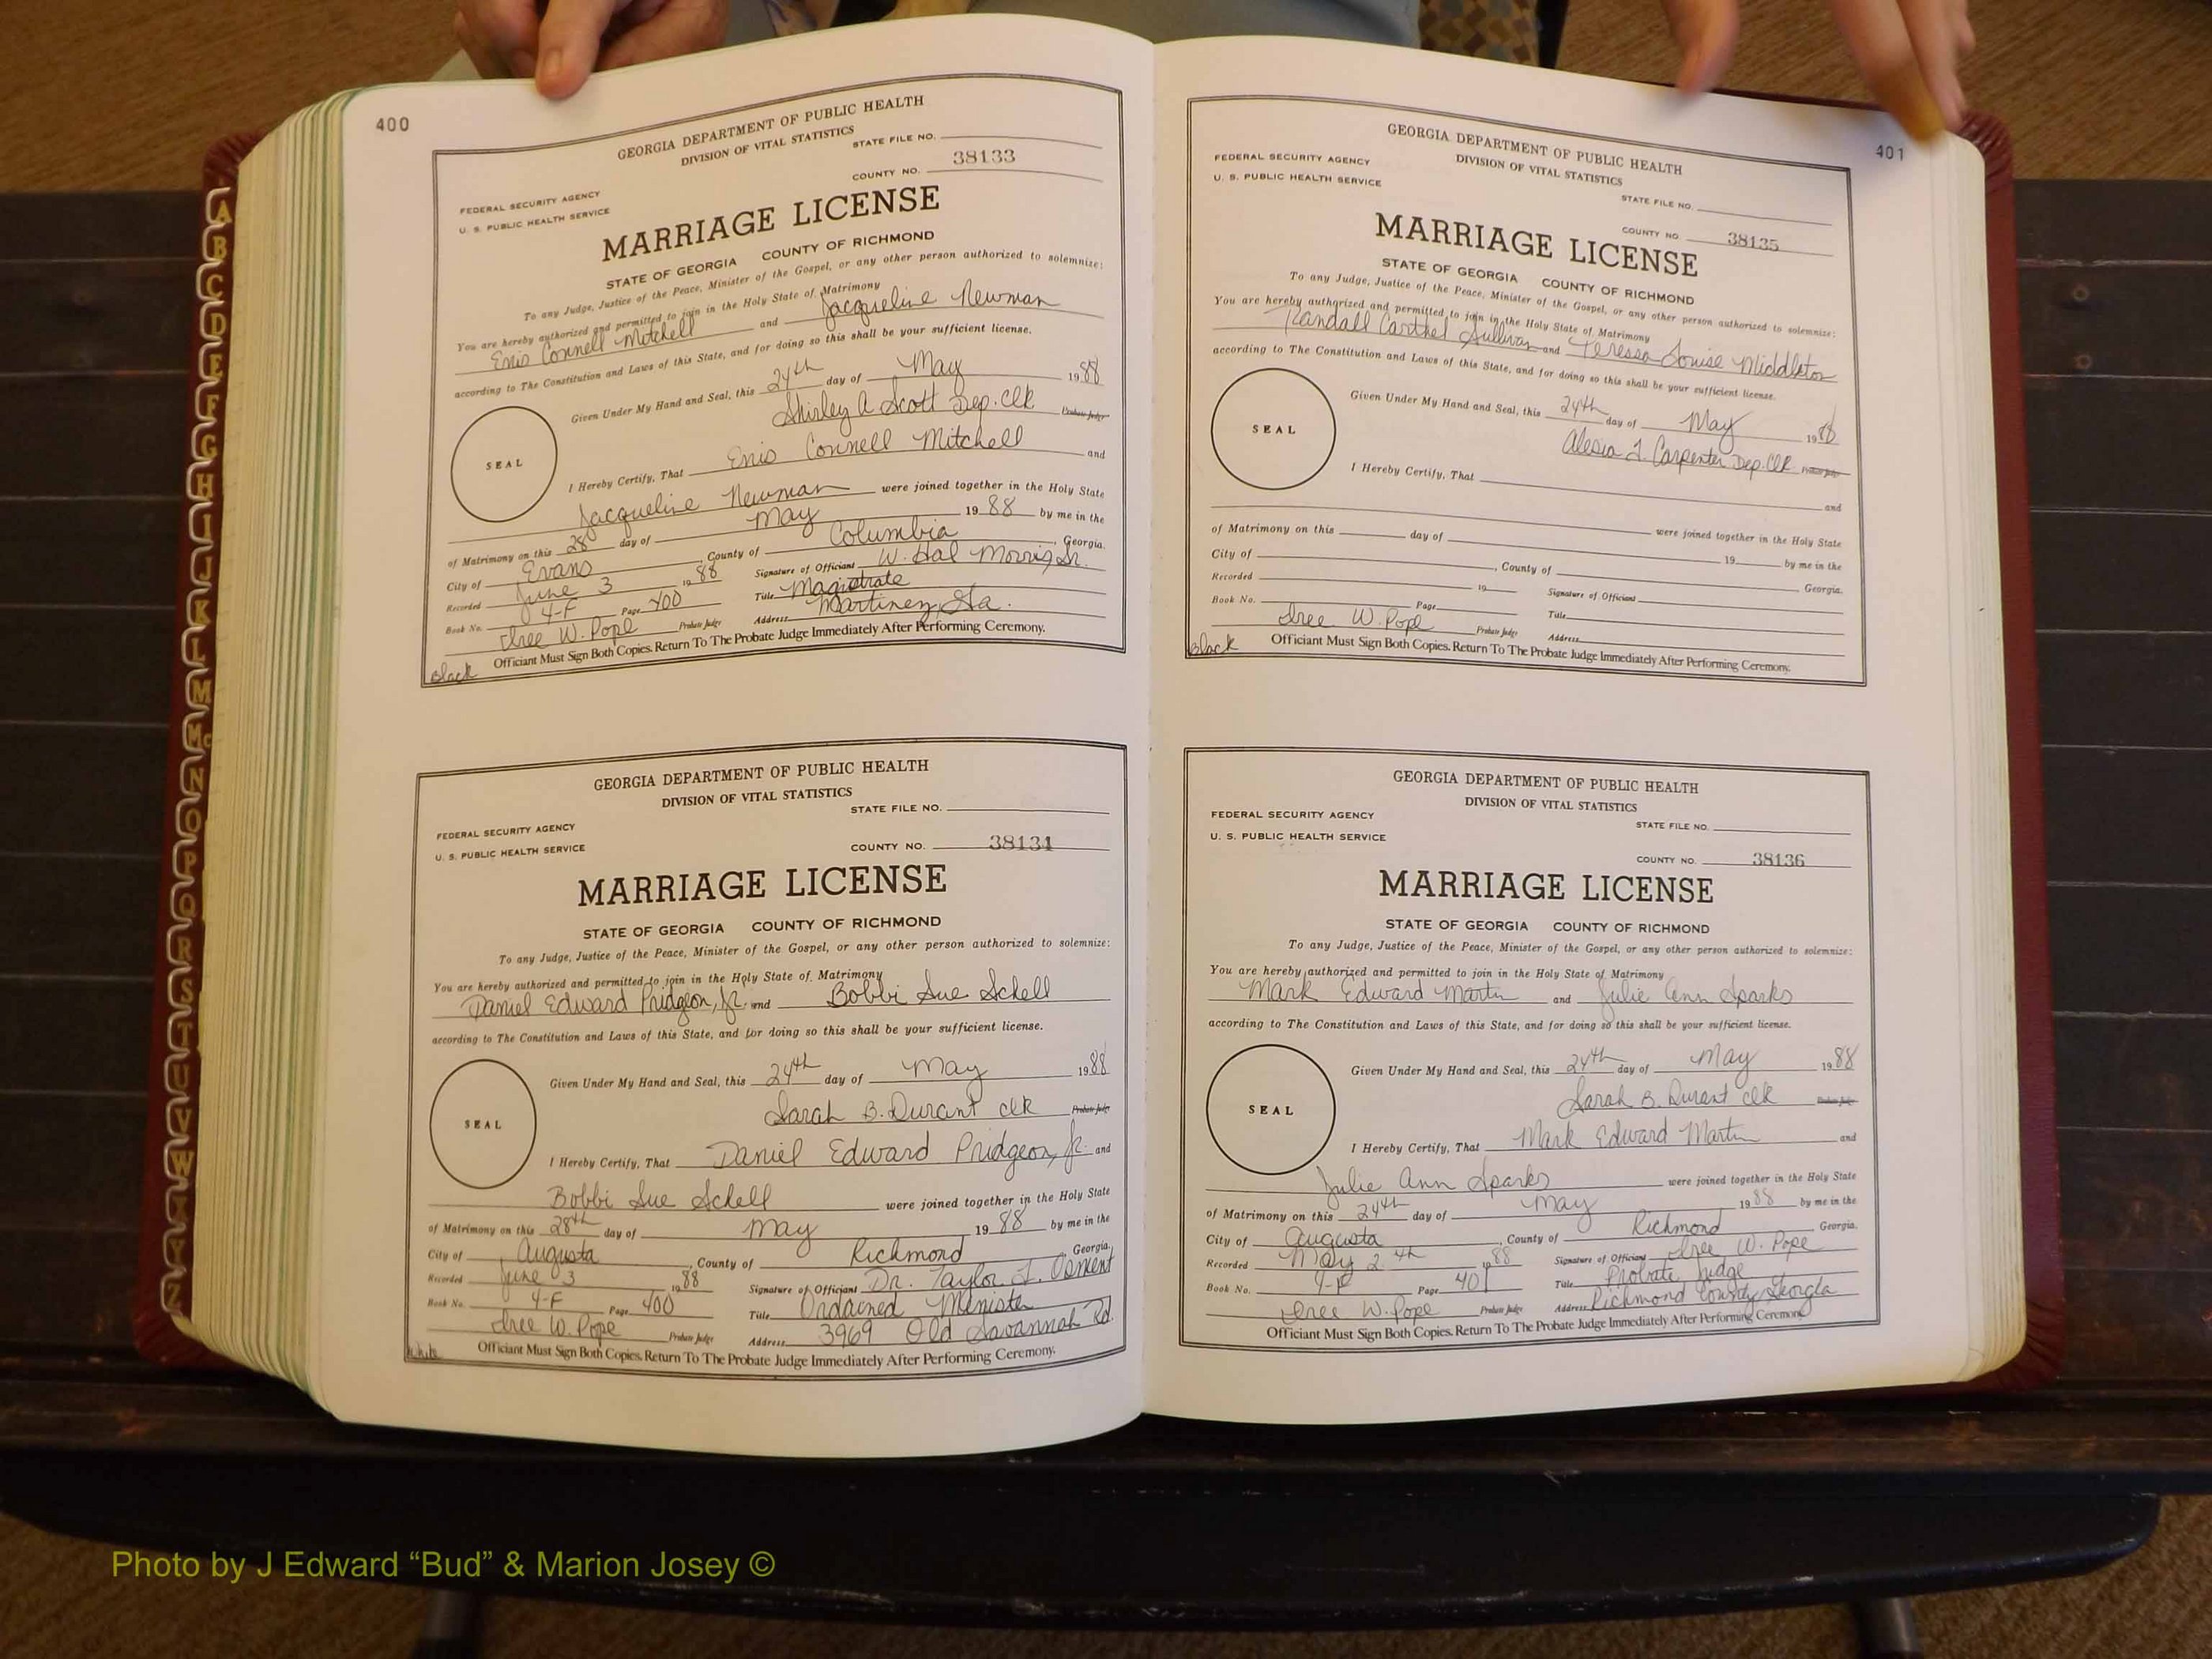 400
GEORGIA DEPARTMENT OF PUBLIC HEALTH
DIVISION OF VITAL STATISTICS
STATE FILE NO.
COUNTY NO. 38133
FEDERAL SECURITY AGENCY
U. S. PUBLIC HEALTH SERVICE
MARRIAGE LICENSE
STATE OF GEORGIA COUNTY OF RICHMOND
To any Judge, Justice of the Peace, Minister of the Gospel, or any other person authorized to solemnize:
You are hereby authorized and permitted to join in the Holy State of Matrimony
Enis Connell Mitchell and Jacqueline Newman
according to The Constitution and Laws of this State, and for doing so this shall be your sufficient license.
Given Under My Hand and Seal, this 24th day of May 1988
Shirley A Scott Dep. Clk Probate Judge
SEAL
I Hereby Certify, That Enis Connell Mitchell and
Jacqueline Newman were joined together in the Holy State
of Matrimony on this 28 day of May 1988 by me in the
City of Evans County of Columbia, Georgia.
Recorded June 3 1988 Signature of Officiant W. Hal Morris, Sr.
Book No. 4-F Page 400 Title Magistrate
Iree W. Pope Probate Judge Address Martinez, Ga.
Officiant Must Sign Both Copies. Return To The Probate Judge Immediately After Performing Ceremony.
Black
GEORGIA DEPARTMENT OF PUBLIC HEALTH
DIVISION OF VITAL STATISTICS
STATE FILE NO.
FEDERAL SECURITY AGENCY
U. S. PUBLIC HEALTH SERVICE
COUNTY NO. 38134
MARRIAGE LICENSE
STATE OF GEORGIA COUNTY OF RICHMOND
To any Judge, Justice of the Peace, Minister of the Gospel, or any other person authorized to solemnize:
You are hereby authorized and permitted to join in the Holy State of Matrimony
Daniel Edward Pridgeon, Jr. and Bobbi Sue Schell
according to The Constitution and Laws of this State, and for doing so this shall be your sufficient license.
Given Under My Hand and Seal, this 24th day of May 1988
Sarah B. Durant clk Probate Judge
SEAL
I Hereby Certify, That Daniel Edward Pridgeon, Jr. and
Bobbi Sue Schell were joined together in the Holy State
of Matrimony on this 28th day of May 1988 by me in the
City of Augusta, County of Richmond, Georgia.
Recorded June 3 1988 Signature of Officiant Dr. Taylor
Book No. 4-F Page 400 Title Ordained Minister
Iree W. Pope Probate Judge Address 3969 Old Savannah Rd.
Officiant Must Sign Both Copies. Return To The Probate Judge Immediately After Performing Ceremony.
401
GEORGIA DEPARTMENT OF PUBLIC HEALTH
DIVISION OF VITAL STATISTICS
FEDERAL SECURITY AGENCY
U. S. PUBLIC HEALTH SERVICE
STATE FILE NO.
COUNTY NO. 38135
MARRIAGE LICENSE
STATE OF GEORGIA COUNTY OF RICHMOND
To any Judge, Justice of the Peace, Minister of the Gospel, or any other person authorized to solemnize:
You are hereby authorized and permitted to join in the Holy State of Matrimony
Randall Carthel Sullivan and Teressa Louise Middleton
according to The Constitution and Laws of this State, and for doing so this shall be your sufficient license.
Given Under My Hand and Seal, this 24th day of May 1988
Alesia J. Carpenter Dep. Clk Probate Judge
SEAL
I Hereby Certify, That
and
were joined together in the Holy State
of Matrimony on this day of 19 by me in the
City of , County of Georgia.
Recorded 19 Signature of Officiant
Book No. Page Title
Iree W. Pope Probate Judge Address
Officiant Must Sign Both Copies. Return To The Probate Judge Immediately After Performing Ceremony.
Black
GEORGIA DEPARTMENT OF PUBLIC HEALTH
DIVISION OF VITAL STATISTICS
FEDERAL SECURITY AGENCY
U. S. PUBLIC HEALTH SERVICE
STATE FILE NO.
COUNTY NO. 38136
MARRIAGE LICENSE
STATE OF GEORGIA COUNTY OF RICHMOND
To any Judge, Justice of the Peace, Minister of the Gospel, or any other person authorized to solemnize:
You are hereby authorized and permitted to join in the Holy State of Matrimony
Mark Edward Martin and Julie Ann Sparks
according to The Constitution and Laws of this State, and for doing so this shall be your sufficient license.
Given Under My Hand and Seal, this 24th day of May 1988
Sarah B. Durant clk Probate Judge
SEAL
I Hereby Certify, That Mark Edward Martin and
Julie Ann Sparks were joined together in the Holy State
of Matrimony on this 24th day of May 1988 by me in the
City of Augusta, County of Richmond Georgia.
Recorded May 1988 Signature of Officiant Iree W. Pope
Book No. 4-F Page 401 Title Probate Judge
Iree W. Pope Probate Judge Address Richmond County, Georgia
Officiant Must Sign Both Copies. Return To The Probate Judge Immediately After Performing Ceremony.
A
B
C
D
E
F
G
H
I
J
K
L
M
Mc
N
O
P
Q
R
S
T
U
V
W
X
Y
Z
Photo by J Edward “Bud” & Marion Josey ©